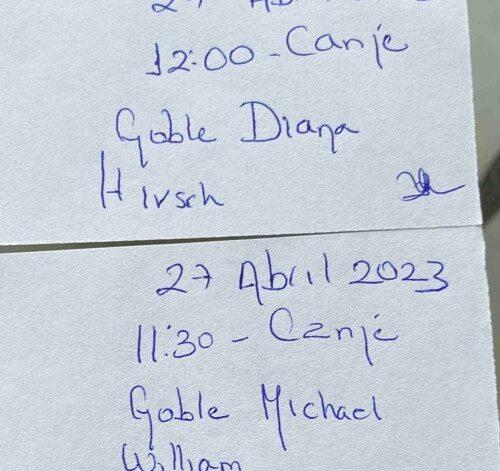 27 Ab
12:00 - Canje
Goble Diana
Hirsch
27 Abril 2023
11:30 - Canje
Goble Michael
William